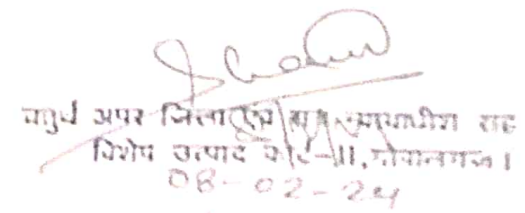 चतुर्थ अपर जिला एवं सत्र न्यायाधीश सह
विशेष उत्पाद कोर्ट-II, गोपालगंज।
08-02-24